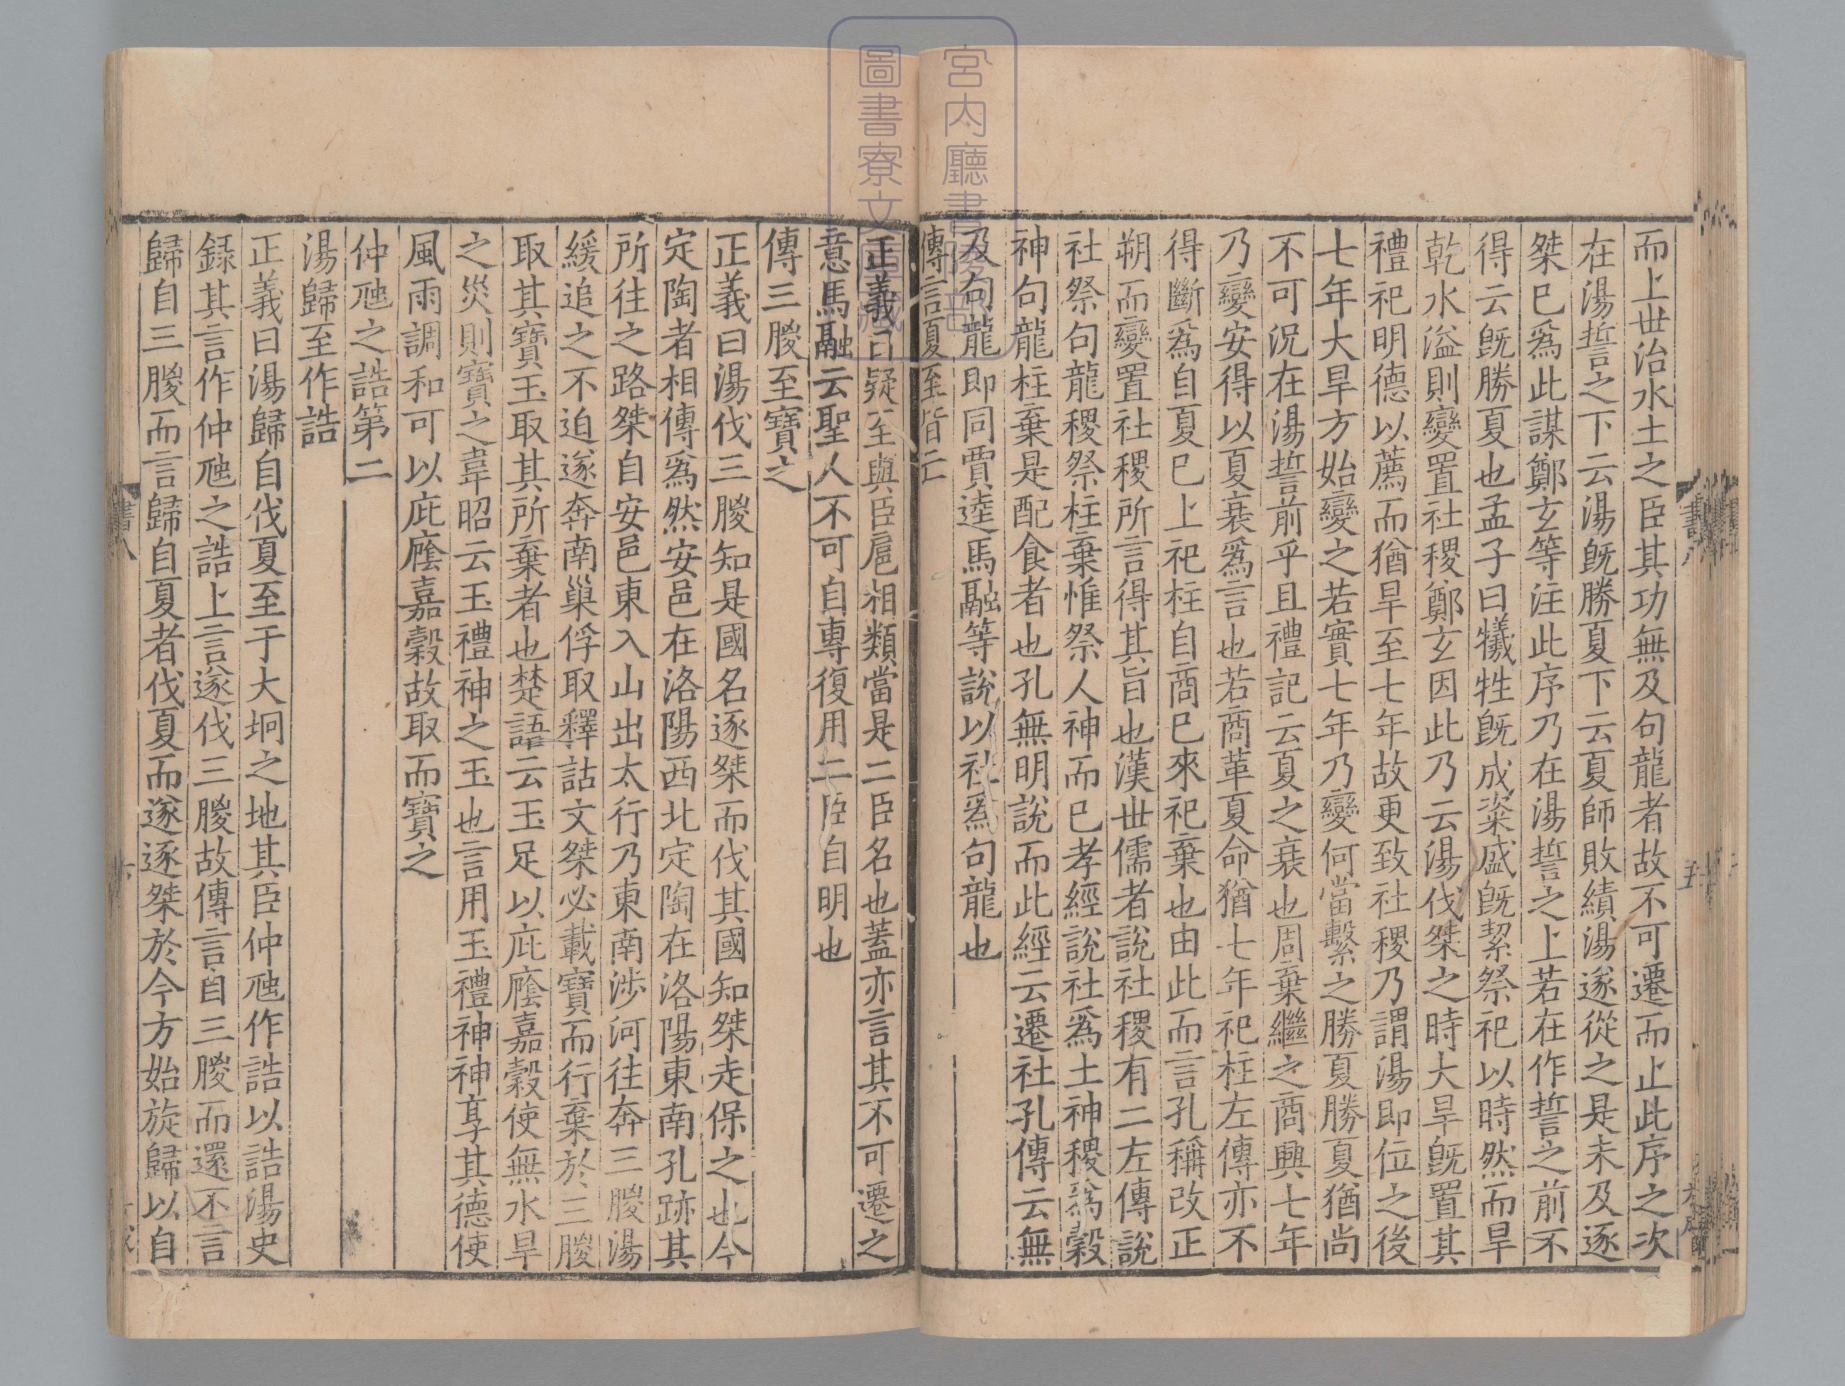 而上世治水土之臣其功無及句龍者故不可遷而止此序之次
在湯誓之下云湯旣勝夏下云夏師敗績湯遂從之是未及逐
桀巳爲此謀鄭玄等注此序乃在湯誓之上若在作誓之前不
得云旣勝夏也孟子曰犧牲旣成粢盛旣絜祭祀以時然而旱
乾水溢則變置社稷鄭玄因此乃云湯伐桀之時大旱旣置其
禮祀明德以薦而猶旱至七年故更致社稷乃謂湯即位之後
七年大旱方始變之若實七年乃變何當繫之勝夏勝夏猶尚
不可況在湯誓前乎且禮記云夏之衰也周棄繼之商興七年
乃變安得以夏衰爲言也若商革夏命猶七年祀柱左傳亦不
得斷爲自夏巳上祀柱自商巳來祀棄也由此而言孔稱改正
朔而變置社稷所言得其旨也漢世儒者說社稷有二左傳說
社祭句龍稷祭柱棄惟祭人神而巳孝經說社爲土神稷爲穀
神句龍柱棄是配食者也孔無明說而此經云遷社孔傳云無
及句龍即同賈逵馬融等說以社爲句龍也
傳言夏至皆亡
正義曰疑至與臣扈相類當是二臣名也蓋亦言其不可遷之
意馬融云聖人不可自專復用二臣自明也
傳三朡至寶之
正義曰湯伐三朡知是國名逐桀而伐其國知桀走保之也今
定陶者相傳爲然安邑在洛陽西北定陶在洛陽東南孔跡其
所往之路桀自安邑東入山出太行乃東南涉河往奔三朡湯
緩追之不迫遂奔南巢俘取釋詁文桀必載寶而行棄於三朡
取其寶玉取其所棄者也楚語云玉足以庇廕嘉穀使無水旱
之災則寶之韋昭云玉禮神之玉也言用玉禮神神享其德使
風雨調和可以庇廕嘉穀故取而寶之
仲虺之誥第二
湯歸至作誥
正義曰湯歸自伐夏至于大坰之地其臣仲虺作誥以誥湯史
錄其言作仲虺之誥上言遂伐三朡故傳言自三朡而還不言
歸自三朡而言歸自夏者伐夏而遂逐桀於今方始旋歸以自
書八
五
書八
宮内廳書陵部
圖書寮文庫藏